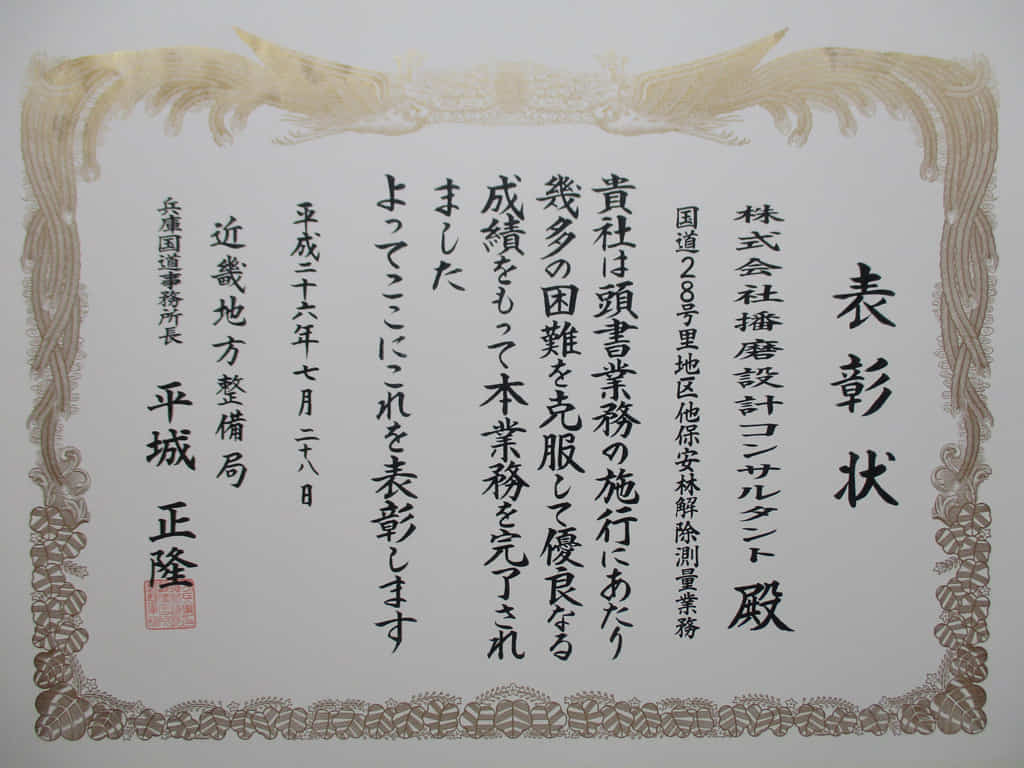 表彰状
株式会社播磨設計コンサルタント 殿
国道28号里地区他保安林解除測量業務
貴社は頭書業務の施行にあたり
幾多の困難を克服して優良なる
成績をもって本業務を完了され
ました
よってここにこれを表彰します
平成二十六年七月二十八日
近畿地方整備局
兵庫国道事務所長 平城 正隆